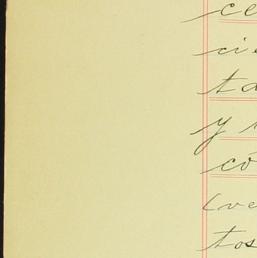 ce
cie
ta
y
có
(ve
tos